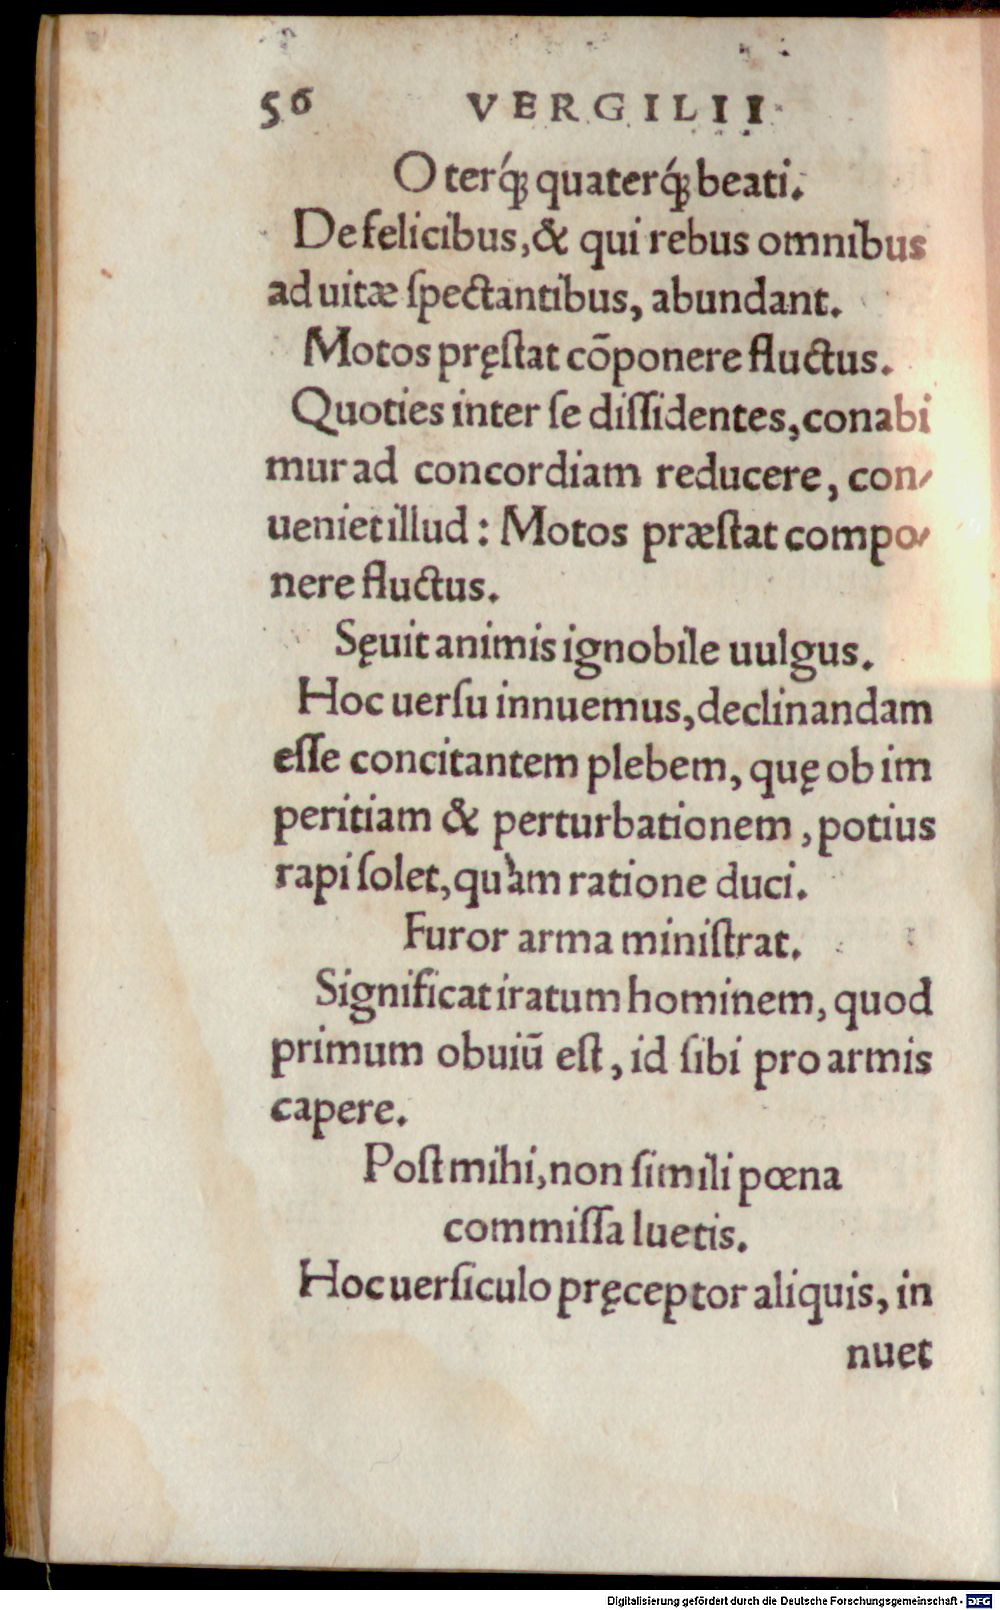 56 VERGILII
O terq́ꝫ quaterq́ꝫ beati.
De felicibus, & qui rebus omnibus
ad uitæ ſpectantibus, abundant.
Motos pręſtat cōponere fluctus.
Quoties inter ſe diſſidentes, conabi
mur ad concordiam reducere, con⸗
ueniet illud: Motos præſtat compo⸗
nere fluctus.
Sęuit animis ignobile uulgus.
Hoc uerſu innuemus, declinandam
eſſe concitantem plebem, quę ob im
peritiam & perturbationem, potius
rapi ſolet, quàm ratione duci.
Furor arma miniſtrat.
Significat iratum hominem, quod
primum obuiū eſt, id ſibi pro armis
capere.
Poſt mihi, non ſimili pœna
commiſſa luetis.
Hoc uerſiculo pręceptor aliquis, in
nuet
Digitalisierung gefördert durch die Deutsche Forschungsgemeinschaft - DFG